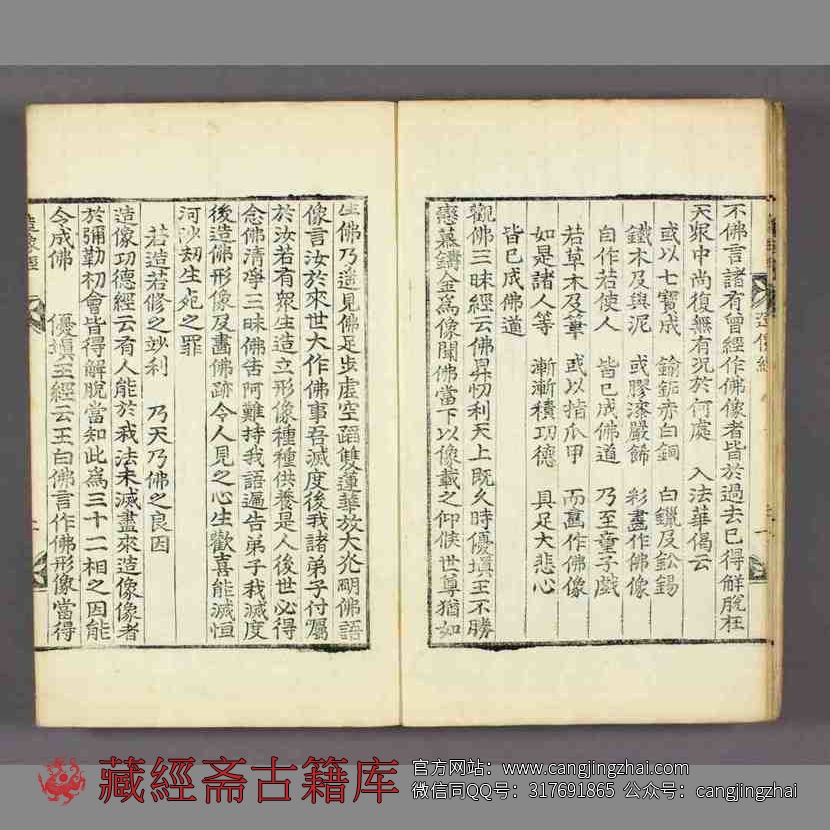 造像經
不佛言諸有曾經作佛像者皆於過去已得解脫在
天眾中尚復無有況於何處　入法華偈云
或以七寶成　鍮鉐赤白銅　白鑞及鉛錫
鐵木及與泥　或膠漆嚴飾　彩畫作佛像
自作若使人　皆已成佛道　乃至童子戲
若草木及筆　或以指爪甲　而畫作佛像
如是諸人等　漸漸積功德　具足大悲心
皆已成佛道
觀佛三昧經云佛昇忉利天上既久時優塡王不勝
戀慕鑄金為像聞佛當下以像載之仰候世尊猶如
生佛乃遙見佛足步虛空蹈雙蓮華放大光明佛語
像言汝於來世大作佛事吾滅度後我諸弟子付囑
於汝若有眾生造立形像種種供養是人後世必得
念佛清淨三昧佛告阿難持我語遍告弟子我滅度
後造佛形像及畵佛跡令人見之心生歡喜能滅恒
河沙劫生死之罪
若造若修之妙利　乃天乃佛之良因
造像功德經云有人能於我法未滅盡來造像像者
於彌勒初會皆得解脫當知此為三十二相之因能
令成佛　優塡王經云王白佛言作佛形像當得
造像經
藏經斋古籍库
官方网站：www.cangjingzhai.com
微信同QQ号：317691865 公众号：cangjingzhai